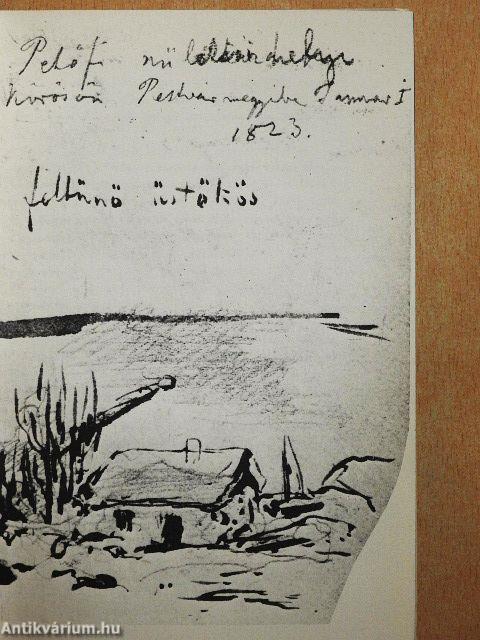 Petőfi szülőhelye
Kőrösön Pestvármegyébe Január I
1823.
feltünö üstökös
Antikvárium.hu